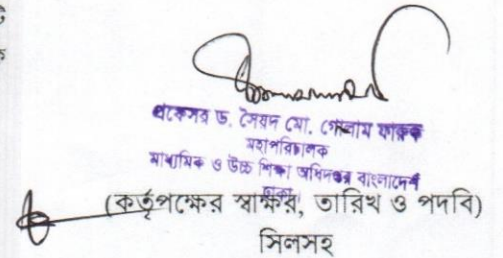 প্রফেসর ড. সৈয়দ মো. গোলাম ফারুক
মহাপরিচালক
মাধ্যমিক ও উচ্চ শিক্ষা অধিদপ্তর বাংলাদেশ
ঢাকা
(কর্তৃপক্ষের স্বাক্ষর, তারিখ ও পদবি)
সিলসহ